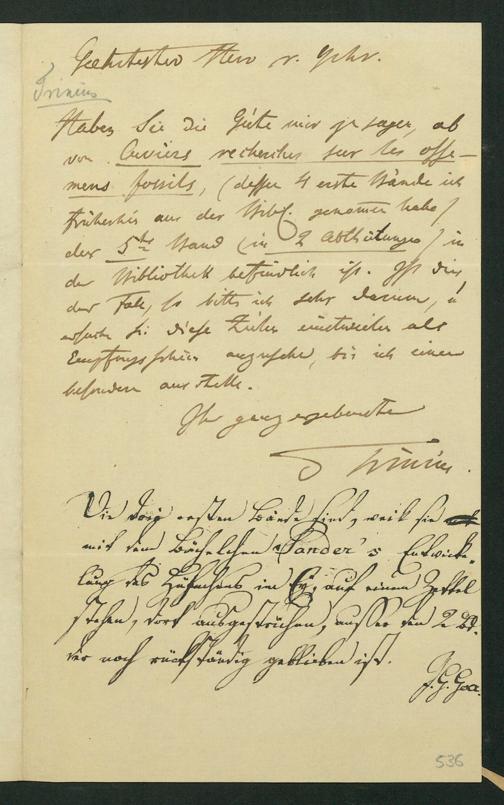 Geehrtester Herr v. Gehr.
Trinius
Haben Sie die Güte mir zu sagen, ob
von Cuviers recherches sur les osse-
mens fossils, (dessen 4 erste Bände ich
früherhin aus der Bibl. genommen habe)
der 5te Band (in 2 Abtheilungen) in
der Bibliothek befindlich ist. Ist dies
der Fall, so bitte ich sehr darum, u
ersuche Sie diese Zeilen einstweilen als
Empfangsschein anzusehen, bis ich einen
besondern ausstelle.
Ihr ganz ergebenster
Trinius.
Die drei ersten Bände sind, weil sie
mit dem Büchelchen Pander's Entwicke-
lung des Hühnchens im Ey, auf einem Zettel
stehen, dort ausgestrichen, ausser den 2 Bd.
der noch rückständig geblieben ist.
536